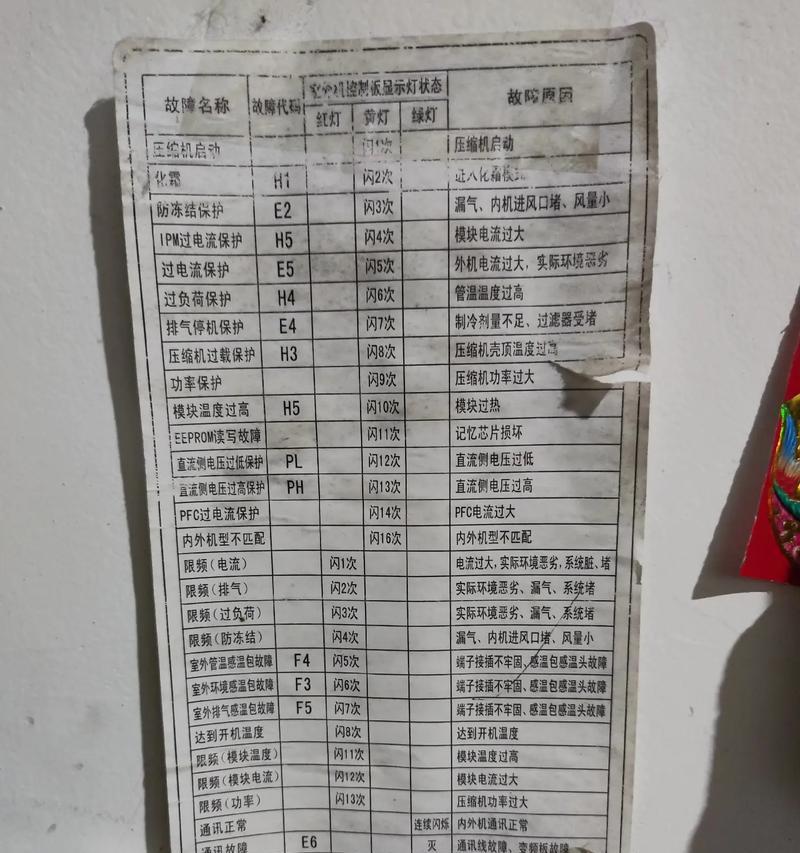 故障名称 故障代码 室外机控制板显示灯状态 故障原因
红灯 黄灯 绿灯
压缩机启动 闪1次 压缩机启动
化霜 H1 闪2次 进入化霜模式
防冻结保护 E2 闪3次 漏气、内机进风口堵、风量小
IPM过电流保护 H5 闪4次 模块电流过大
过电流保护 E5 闪5次 外机电流过大，实际环境恶劣
过负荷保护 H4 闪6次 管温温度过高
排气停机保护 E4 闪7次 制冷剂量不足、过滤器受堵
压缩机过载保护 H3 闪8次 压缩机壳顶温度过高
功率保护 闪9次 压缩机功率过大
模块温度过高 H5 闪10次 模块过热
EEPROM读写故障 闪11次 记忆芯片损坏
直流侧电压过低保护 PL 闪12次 直流侧电压过低
直流侧电压过高保护 PH 闪13次 直流侧电压过高
PFC过电流保护 闪14次 PFC电流过大
内外机型不匹配 闪16次 内外机型不匹配
限频(电流) 闪1次 电流过大,实际环境恶劣,系统脏、堵
限频(排气) 闪2次 实际环境恶劣、漏气、系统堵
限频(过负荷) 闪3次 实际环境恶劣、漏气、系统堵
限频(防冻结) 闪4次 漏气、内机进风口堵、风量小
室外管温感温包故障 F4 闪5次 端子接插不牢固、感温包感温头故障
室外环境感温包故障 F3 闪6次 端子接插不牢固、感温包感温头故障
室外排气感温包故障 F5 闪7次 端子接插不牢固、感温包感温头故障
达到开机温度 闪8次 达到开机温度
限频(模块温度) 闪11次 模块温度过高
限频(模块电流) 闪12次 模块电流过大
限频(功率) 闪13次 压缩机功率过大
通讯正常 连续闪烁 内外机通讯正常
通讯故障 E6 灭 通讯线故障、变频板故障